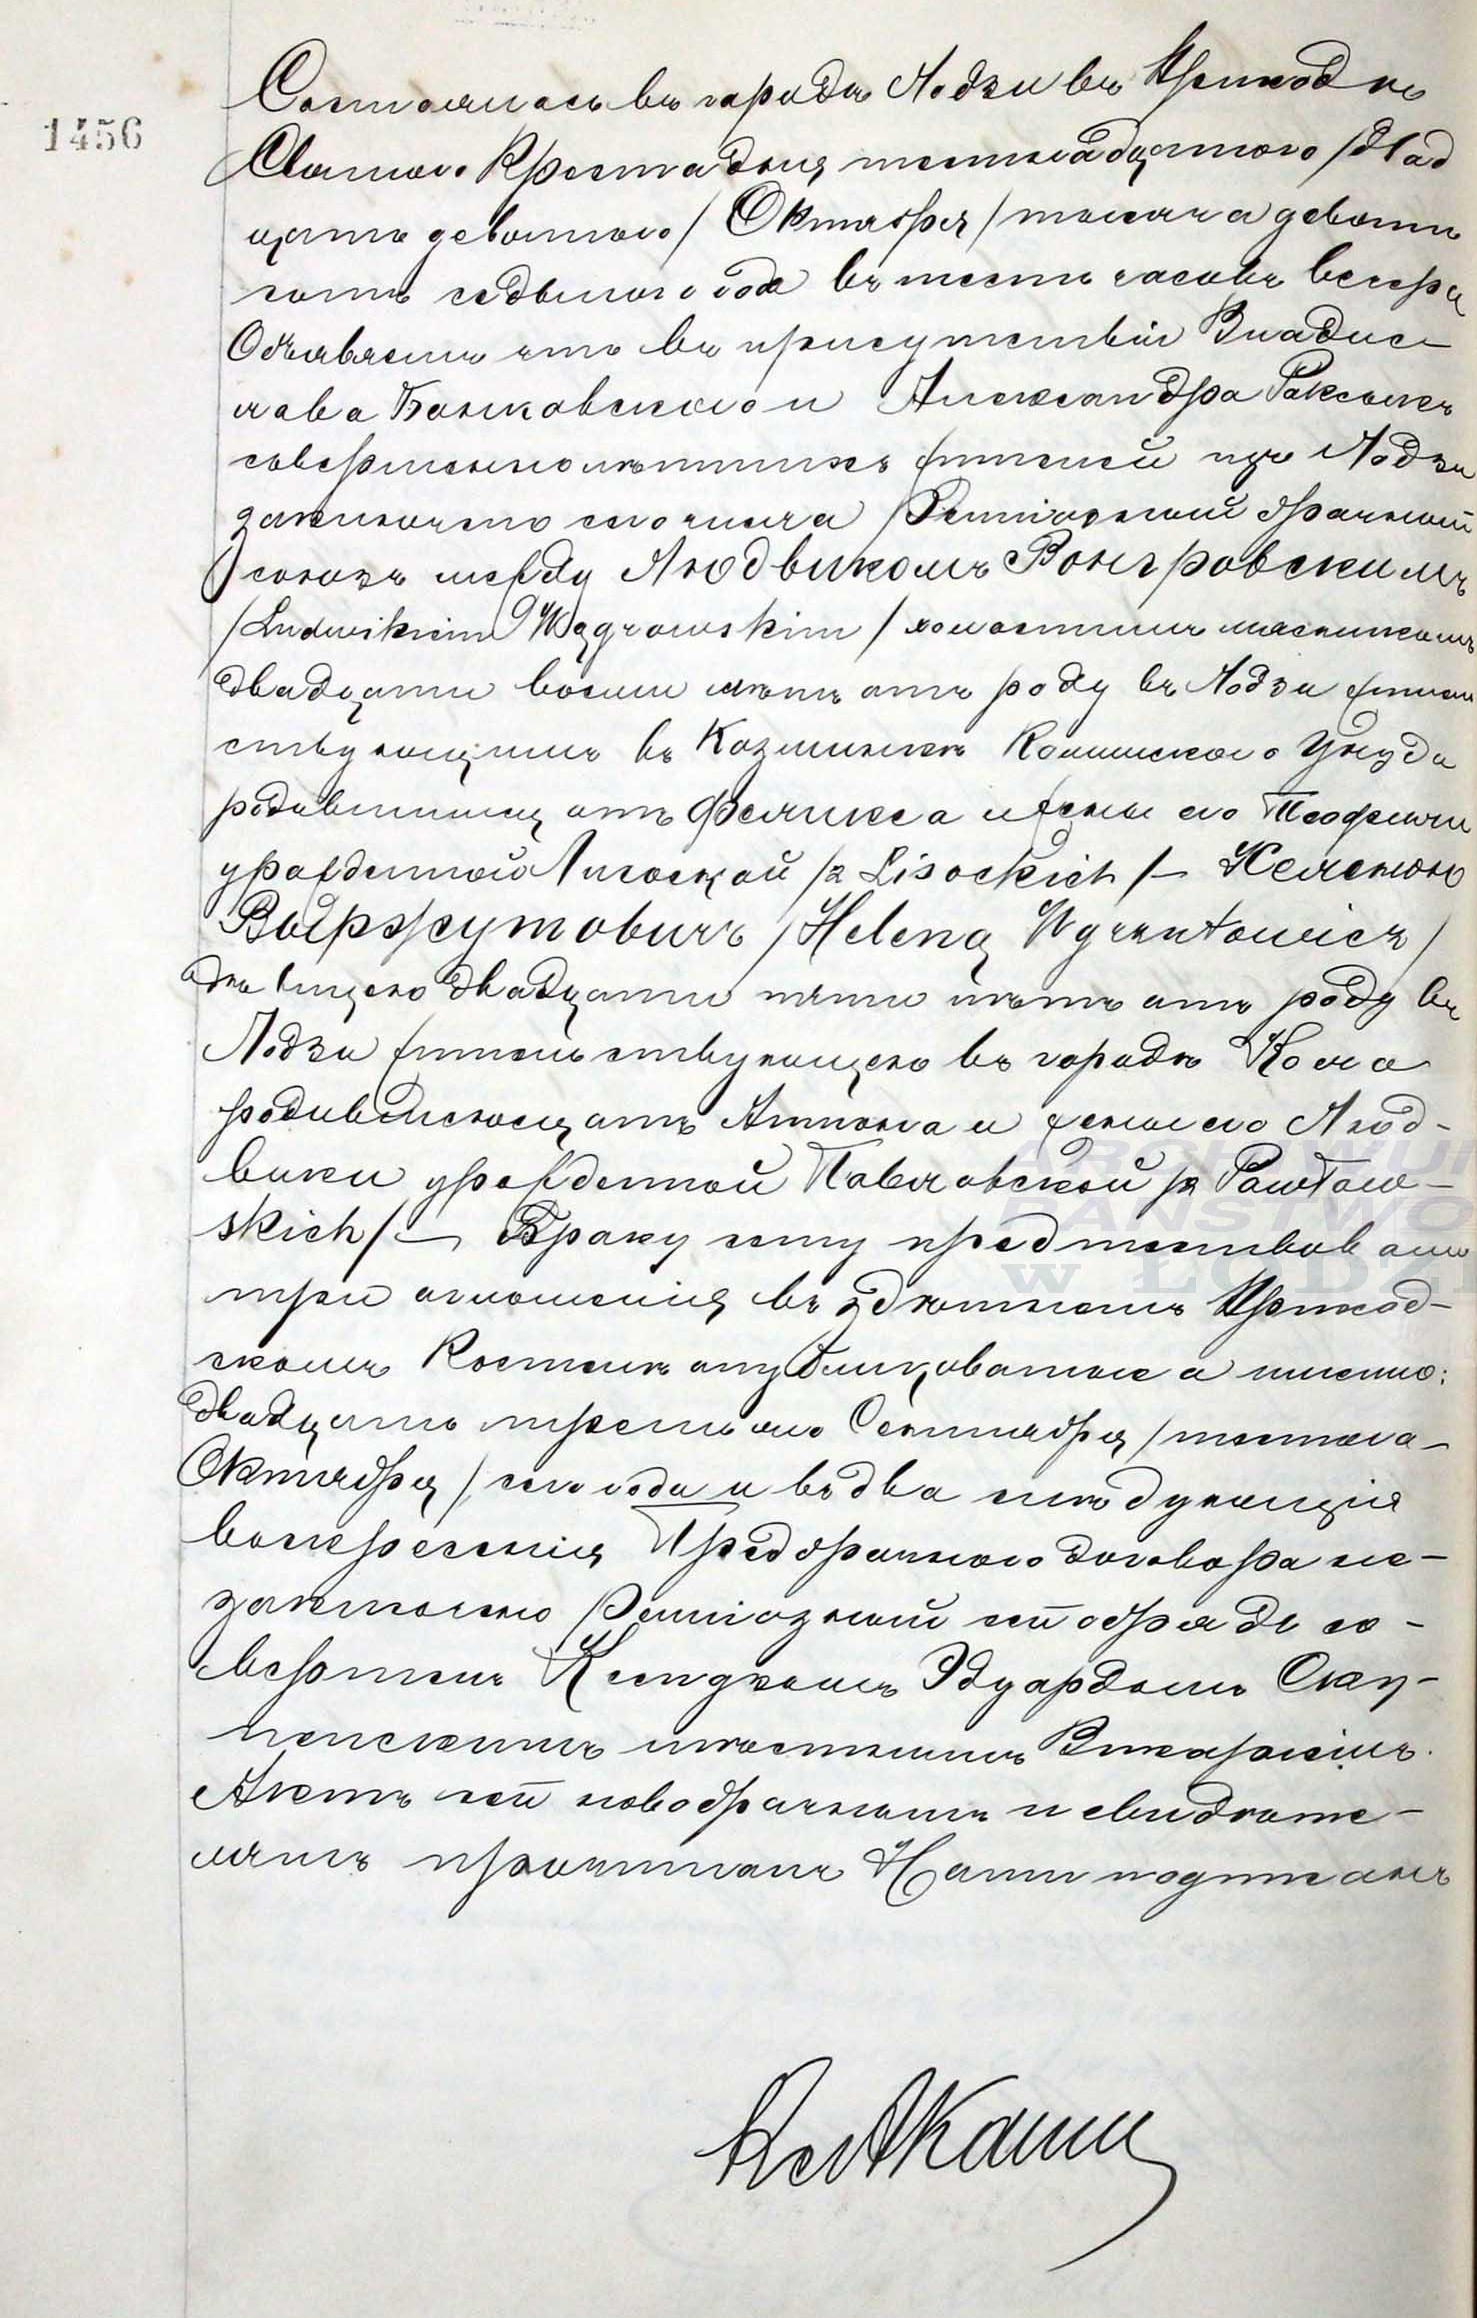 1456
Состоялось въ городѣ Лодзи въ Приходѣ
Святого Креста дня шестнадцатого /двад
цать девятого/ Октября /тысяча девять
сотъ седьмого года въ шесть часовъ вечера
Объявляемъ что въ присутствіи Владис-
лава Банковского и Александра
совершеннолѣтнихъ жителей изъ Лодзи
заключено сего числа Религіозный брачный
союзъ между Людвикомъ Вонгровскимъ
/Ludwikiem Wągrowskim/ холостымъ
двадцати восьми лѣтъ отъ роду въ Лодзи житель
ствующимъ въ Козминкѣ Калишского Уѣзда
родившимся отъ Феликса и жены его Теофили
урожденной Лисоцкой /z Lisockich/ – Хеленою
Выржутовичъ /Heleną Wyrzutowicz/
дѣвицею двадцати пяти лѣтъ отъ роду въ
Лодзи жительствующею въ городѣ Кола
родившеюся отъ Антона и жены его Люд-
вики урожденной Павловской /z Pawłow-
skich/ – Браку сему предшествовали
три оглашенія въ здѣшнемъ Приход-
скомъ Костелѣ опубликованные а именно:
двадцать третьяго Сентября /шестого
Октября/ сего года и въ два слѣдующія
воскресенія Предбрачного договора не-
заключено Религіозный сей обрядъ со-
вершенъ Ксендзомъ Эдуардомъ
мѣстнымъ Викаріемъ.
Актъ сей новобрачнымъ и свидѣте-
лямъ прочитанъ Нами подписанъ
ARCHIWUM
PAŃSTWO
W ŁODZI